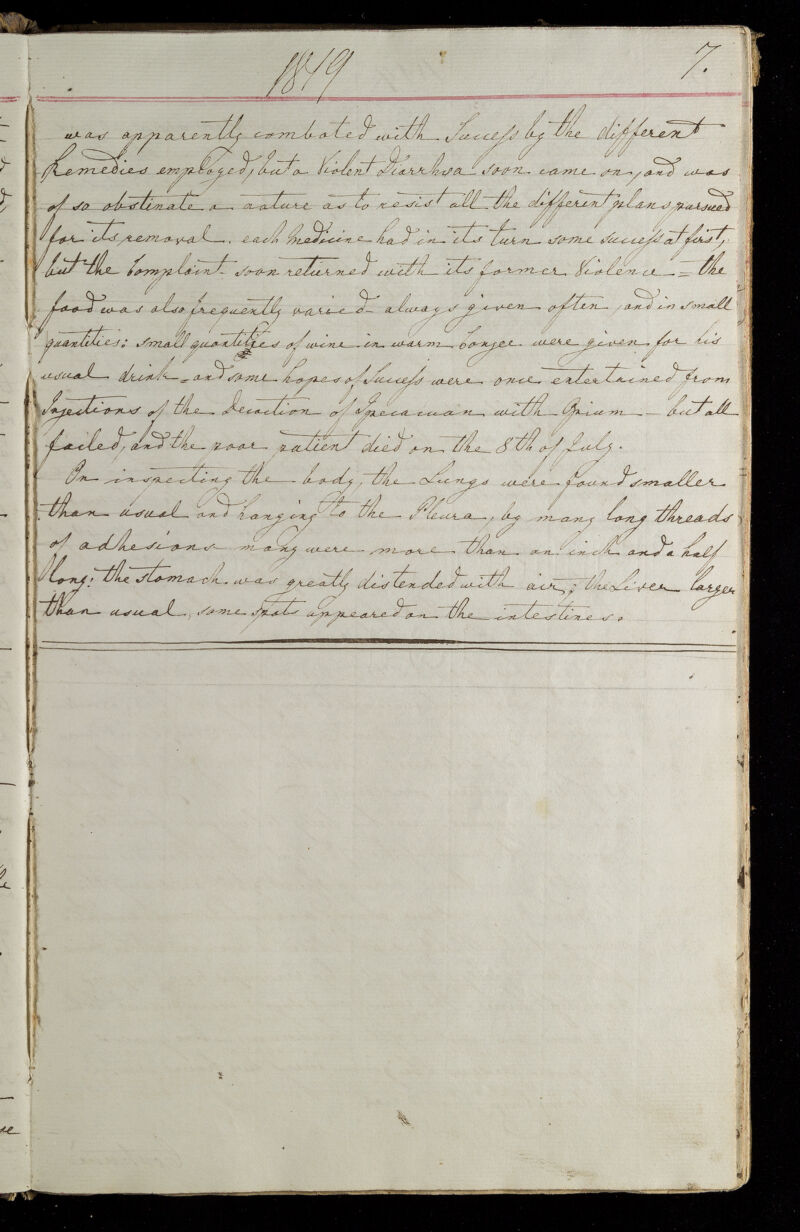 1849 7.
was apparently combated with Success by the different
Remedies employed, but a Violent Diarrhsa soon came on, and was
of so obstinate a nature as to resist all the different plans pursued
for its removal. each Medicine had in its turn some success at first,
but the Complaint soon returned with its former Violence = the
food was also frequently varied - always given often, and in small
quantities: small quantities of wine in warm Conjee were given for his
usual drink - and some hopes of Success were once entertained from
Injections of the Decoction of Ipecacuan with Opium - but all
failed, and the poor patient died on the 8th of July.
On inspecting the body, the Lungs were found smaller
than usual and hanging to the Pleura, by many long threads
of adhesions many were more than an inch and a half
long: the stomach was greatly distended with air; the Liver larger
than usual, some spots appeared on the intestines.